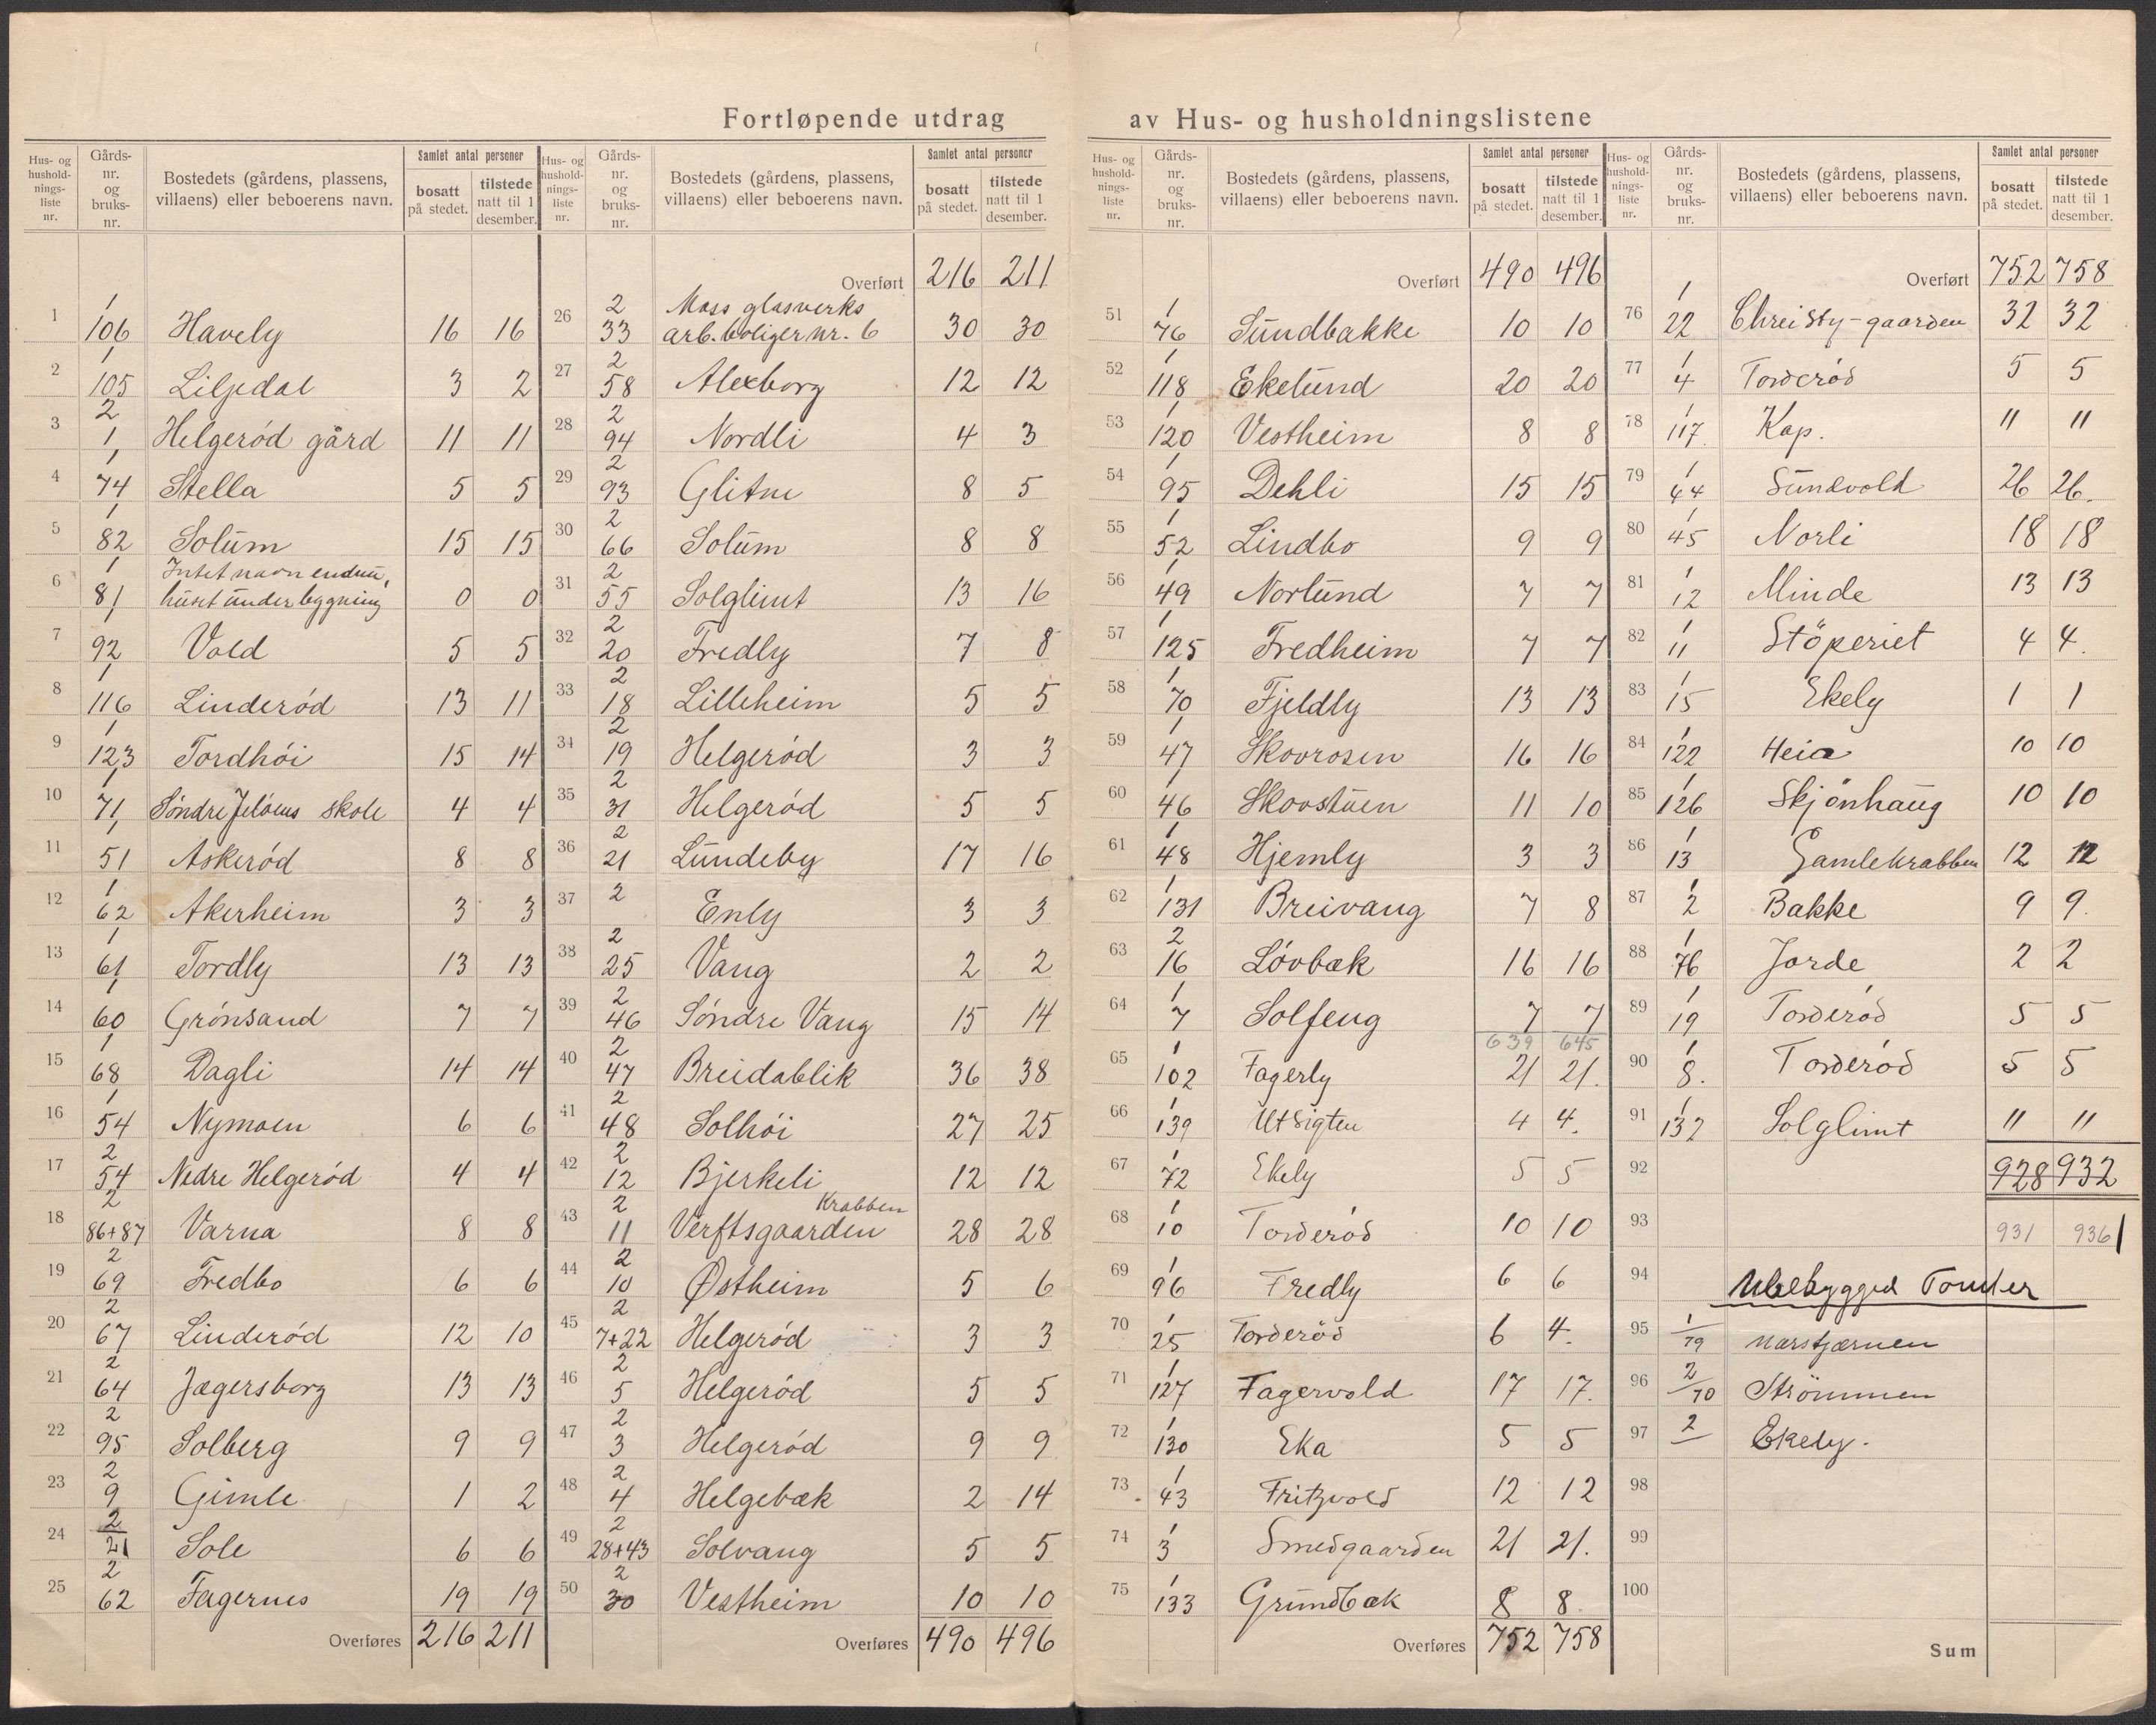 Fortløpende utdrag av Hus- og husholdningslistene
Hus- og hushold-nings-liste nr. | Gårds-nr. og bruks-nr. | Bostedets (gårdens, plassens, villaens) eller beboerens navn. | Samlet antal personer | bosatt på stedet. | tilstede natt til 1 desember.
1 1 106 Havely 16 16
2 1 105 Liljedal 3 2
3 2 1 Helgerød gård 11 11
4 1 74 Stella 5 5
5 1 82 Solum 15 15
6 1 81 Intet navn endnu, huset under bygning 0 0
7 1 92 Vold 5 5
8 1 116 Linderød 13 11
9 1 123 Tordhöi 15 14
10 1 71 Søndre Jeløens skole 4 4
11 1 51 Askerød 8 8
12 1 62 Akerheim 3 3
13 1 61 Tordly 13 13
14 1 60 Grønsand 7 7
15 1 68 Dagli 14 14
16 1 54 Nymoen 6 6
17 2 54 Nedre Helgerød 4 4
18 2 86+87 Varna 8 8
19 2 69 Fredbo 6 6
20 2 67 Linderød 12 10
21 2 64 Jægersborg 13 13
22 2 95 Solberg 9 9
23 2 9 Gimle 1 2
24 2 21 Sole 6 6
25 2 62 Fagernes 19 19
Overføres 216 211
Hus- og hushold-nings-liste nr. | Gårds-nr. og bruks-nr. | Bostedets (gårdens, plassens, villaens) eller beboerens navn. | Samlet antal personer | bosatt på stedet. | tilstede natt til 1 desember.
Overført 216 211
26 2 33 Moss glasverks arb. boliger nr. 6 30 30
27 2 58 Alexborg 12 12
28 2 94 Nordli 4 3
29 2 93 Glitne 8 5
30 2 66 Solum 8 8
31 2 55 Solglimt 13 16
32 2 20 Fredly 7 8
33 2 18 Lilleheim 5 5
34 2 19 Helgerød 3 3
35 2 31 Helgerød 5 5
36 2 21 Lundeby 17 16
37 2 Enly 3 3
38 2 25 Vang 2 2
39 2 46 Søndre Vang 15 14
40 2 47 Breidablik 36 38
41 2 48 Solhöi 27 25
42 2 12 Bjerkeli 12 12
43 2 11 Krabben Verftsgaarden 28 28
44 2 10 Østheim 5 6
45 2 7+22 Helgerød 3 3
46 2 5 Helgerød 5 5
47 2 3 Helgerød 9 9
48 2 4 Helgebæk 2 14
49 2 28+43 Solvang 5 5
50 2 30 Vestheim 10 10
Overføres 490 496
Hus- og hushold-nings-liste nr. | Gårds-nr. og bruks-nr. | Bostedets (gårdens, plassens, villaens) eller beboerens navn. | Samlet antal personer | bosatt på stedet. | tilstede natt til 1 desember.
Overført 490 496
51 1 76 Sundbakke 10 10
52 1 118 Ekelund 20 20
53 1 120 Vestheim 8 8
54 1 95 Dehli 15 15
55 1 52 Lindbo 9 9
56 1 49 Norlund 7 7
57 1 125 Fredheim 7 7
58 1 70 Fjeldly 13 13
59 1 47 Skovrosen 16 16
60 1 46 Skovstuen 11 10
61 1 48 Hjemly 3 3
62 1 131 Breivang 7 8
63 2 16 Løvbæk 16 16
64 1 7 Solfeng 7 7
639 645
65 1 102 Fagerly 21 21.
66 1 139 Utsigten 4 4.
67 1 72 Ekely 5 5
68 1 10 Torderød 10 10
69 1 96 Fredly 6 6
70 1 25 Torderød 6 4.
71 1 127 Fagervold 17 17.
72 1 130 Eka 5 5
73 1 43 Fritzvold 12 12
74 1 3 Smedgaarden 21 21.
75 1 133 Grundbæk 8 8
Overføres 752 758
Hus- og hushold-nings-liste nr. | Gårds-nr. og bruks-nr. | Bostedets (gårdens, plassens, villaens) eller beboerens navn. | Samlet antal personer | bosatt på stedet. | tilstede natt til 1 desember.
Overført 752 758
76 1 22 Chreisty-gaarden 32 32
77 1 4 Torderød 5 5
78 1 117. Kap. 11 11
79 1 44 Sundvold 26 26.
80 1 45 Norli 18 18
81 1 12 Minde 13 13
82 1 11 Stöperiet 4 4.
83 1 15 Ekely 1 1
84 1 122 Heia 10 10
85 1 126 Skjönhaug 10 10
86 1 13 Gamlekrabben 12 12
87 1 2 Bakke 9 9.
88 1 76 Jorde 2 2
89 1 19 Torderød 5 5
90 1 8. Torderød 5 5
91 1 132 Solglimt 11 11
92 928 932
93 931 936
94 Ubebygged Tomter
95 1/79 Morstjærnen
96 2/70 Strömmen
97 2 Ekely.
98
99
100
Sum